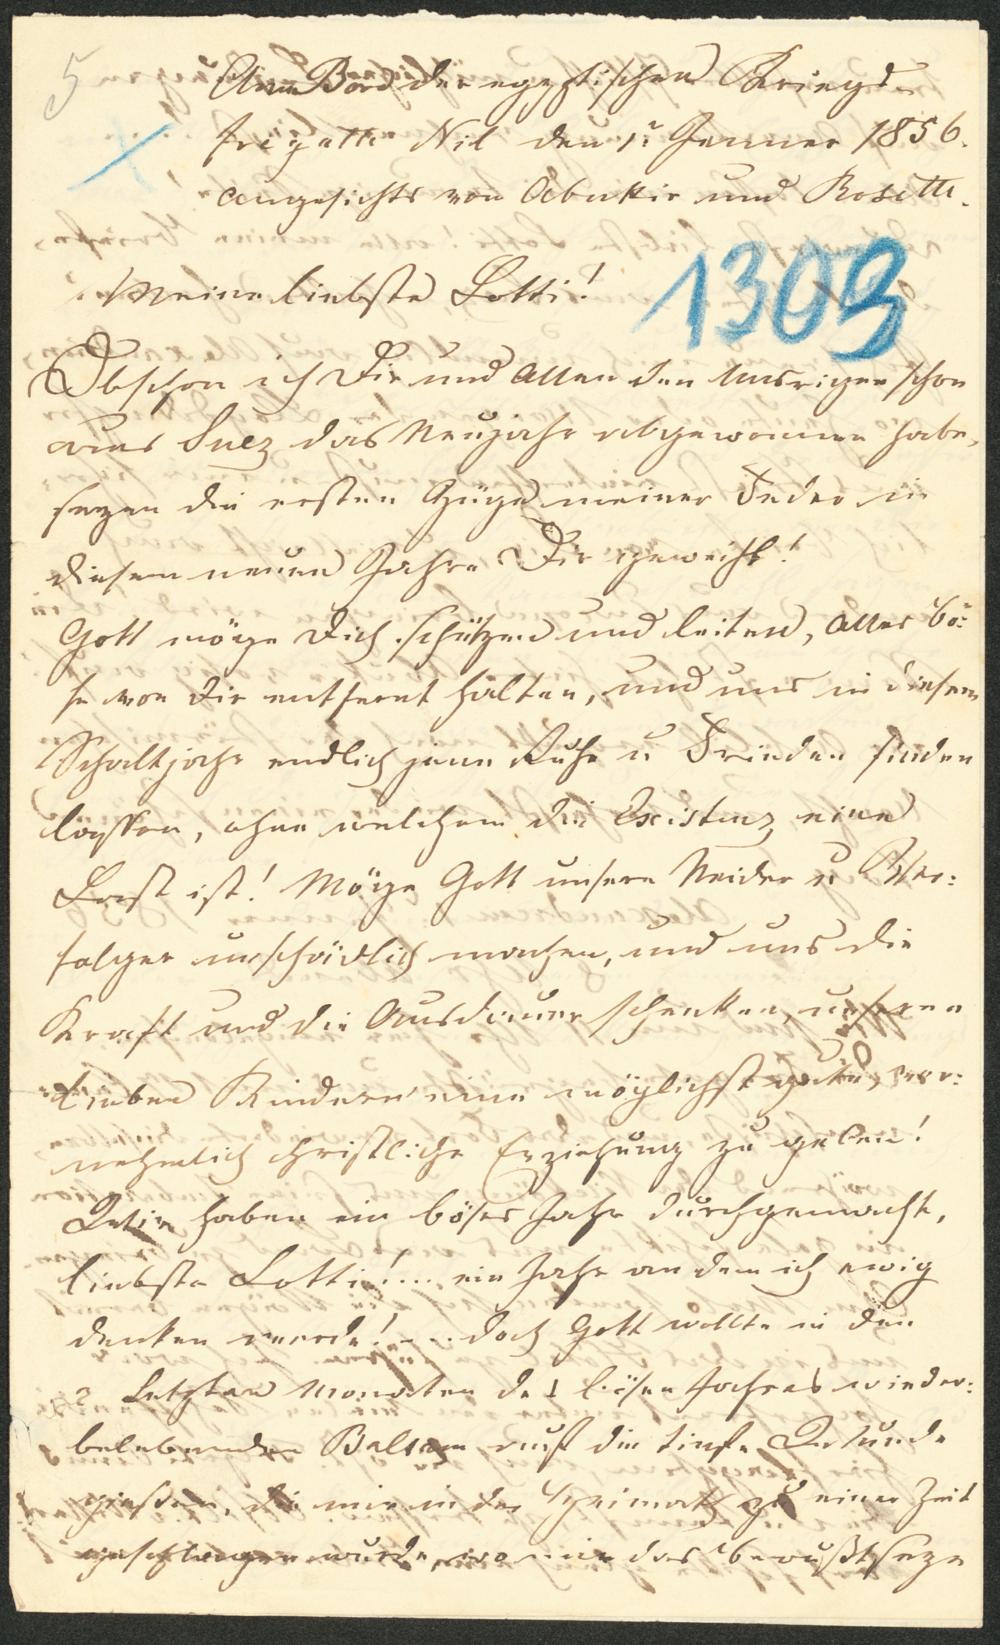 5
Am Bord der egyptischen Kriegs-
fregatte Nil den 1t Jenner 1856.
Angesichts von Abukkir und Rosette.
1303
Meine liebste Lotti!
Obschon ich Dir und Allen den Unsrigen schon
aus Suez das Neujahr abgewonnen habe,
seyen die ersten Züge meiner Feder in
diesem neuen Jahre Dir geweiht!
Gott möge Dich schützen und leiten, Alles bö:
se von Dir entfernt halten, und uns in diesem
Schaltjahr endlich jene Ruhe u Frieden finden
lassen, ohne welchem die Existenz eine
Last ist! Möge Gott unsere Neider u Ver:
folger unschädlich machen, und uns die
Kraft und die Ausdauer schenken, unseren
lieben Kindern eine möglichst gute, vor:
nehmlich christliche Erziehung zu geben!
Wir haben ein böses Jahr durchgemacht,
liebste Lotti!... ein Jahr an dem ich ewig
denken werde!... doch Gott wollte in den
2 letzten Monaten des bösen Jahres wieder:
belebenden Balsam auf die tiefe Wunde
giessen, die mir in der Heimath zu einer Zeit
geschlagen wurde, wo mir das Bewußtseyn